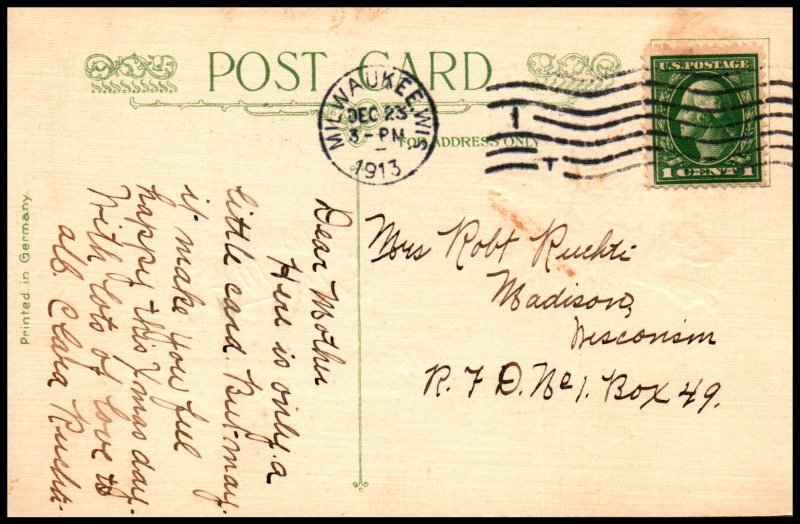 POST CARD
MILWAUKEE, WIS.
DEC 23
3-PM
1913
U.S. POSTAGE
1 CENT 1
FOR ADDRESS ONLY
Printed in Germany
Dear Mother
Here is only a
little card. But may
it make you feel
happy this Xmas day.
With lots of love to
all. Clara Ruchti
Mrs Robt Ruchti
Madison,
Wisconsin
R. F. D. No 1. Box 49.